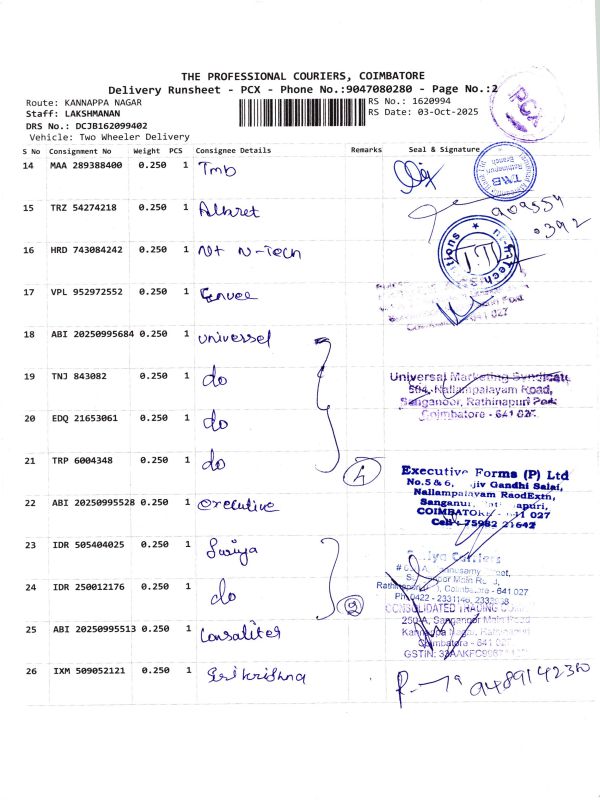 THE PROFESSIONAL COURIERS, COIMBATORE
Delivery Runsheet - PCX - Phone No.:9047080280 - Page No.:2
Route: KANNAPPA NAGAR
RS No.: 1620994
Staff: LAKSHMANAN
RS Date: 03-Oct-2025
DRS No.: DCJB162099402
Vehicle: Two Wheeler Delivery
PCX
S No Consignment No Weight PCS Consignee Details Remarks Seal & Signature
14 MAA 289388400 0.250 1 Tmb
TMB
Branch
15 TRZ 54274218 0.250 1
909559
0392
16 HRD 743084242 0.250 1 Nt N-Tech
17 VPL 952972552 0.250 1
641 027
18 ABI 20250995684 0.250 1 universel
19 TNJ 843082 0.250 1 do
Universal Marketing Syndicate
504, Nallampalayam Road,
Sanganoor, Rathinapuri Post
Coimbatore - 641 027.
20 EDQ 21653061 0.250 1 do
21 TRP 6004348 0.250 1 do
4
Executive Forms (P) Ltd
No.5 & 6, jiv Gandhi Salai,
Nallampalayam RaodExtn,
Sanganur, apuri,
COIMBATORE - 641 027
Cell : 75982 21642
22 ABI 20250995528 0.250 1 executive
23 IDR 505404025 0.250 1 Suriya
Carriers
24 IDR 250012176 0.250 1 do
2
Coimbatore - 641 027
Ph:0422 - 2331146,
CONSOLIDATED TRADING
250-A, Sanganoor Main Road
Kannappa Nagar, Rathinapuri
Coimbatore - 641 027
GSTIN:
25 ABI 20250995513 0.250 1
26 IXM 509052121 0.250 1 Sri krishna
9489142310